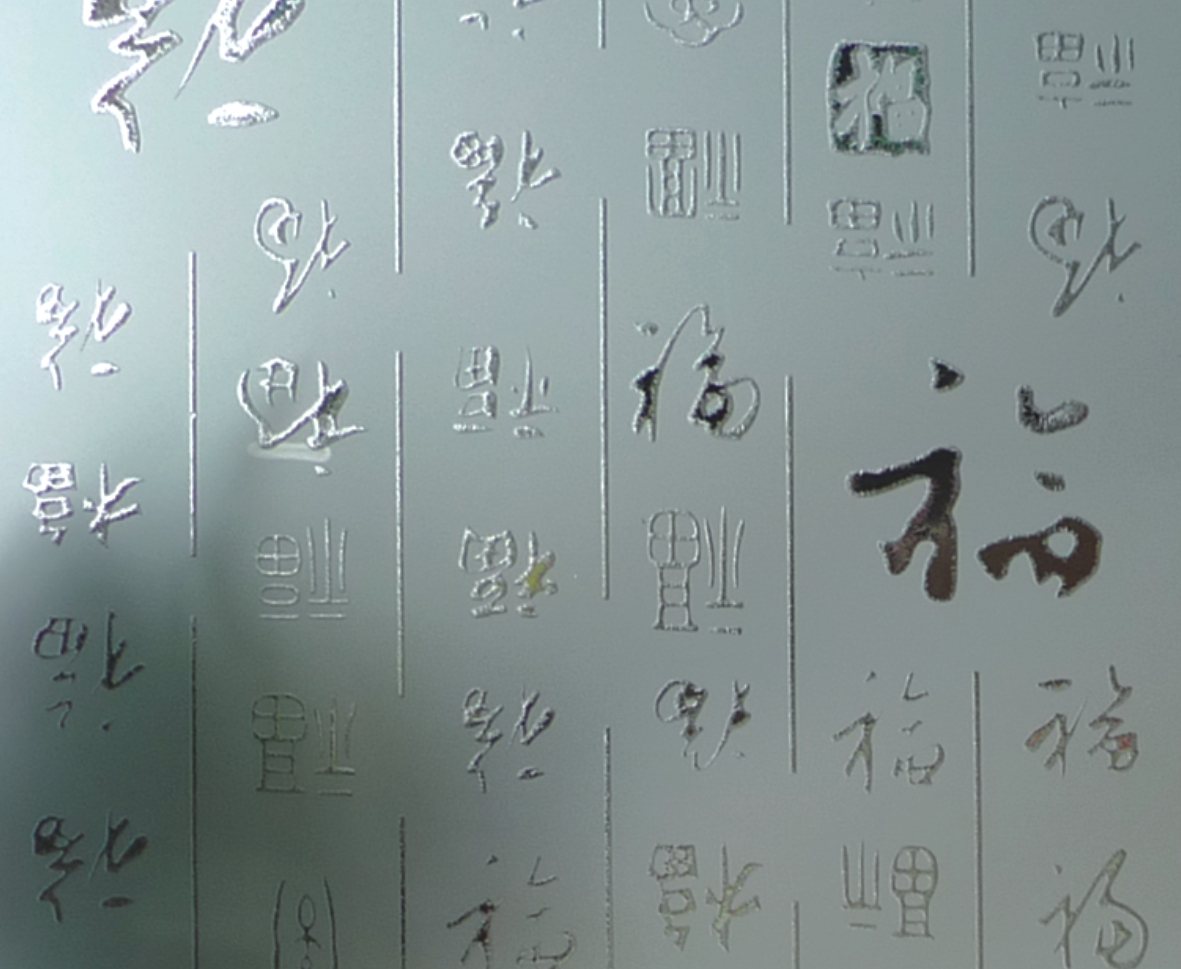 福福福福
福福福福
福福福福福
福福福福福
福福福福
福福福福福